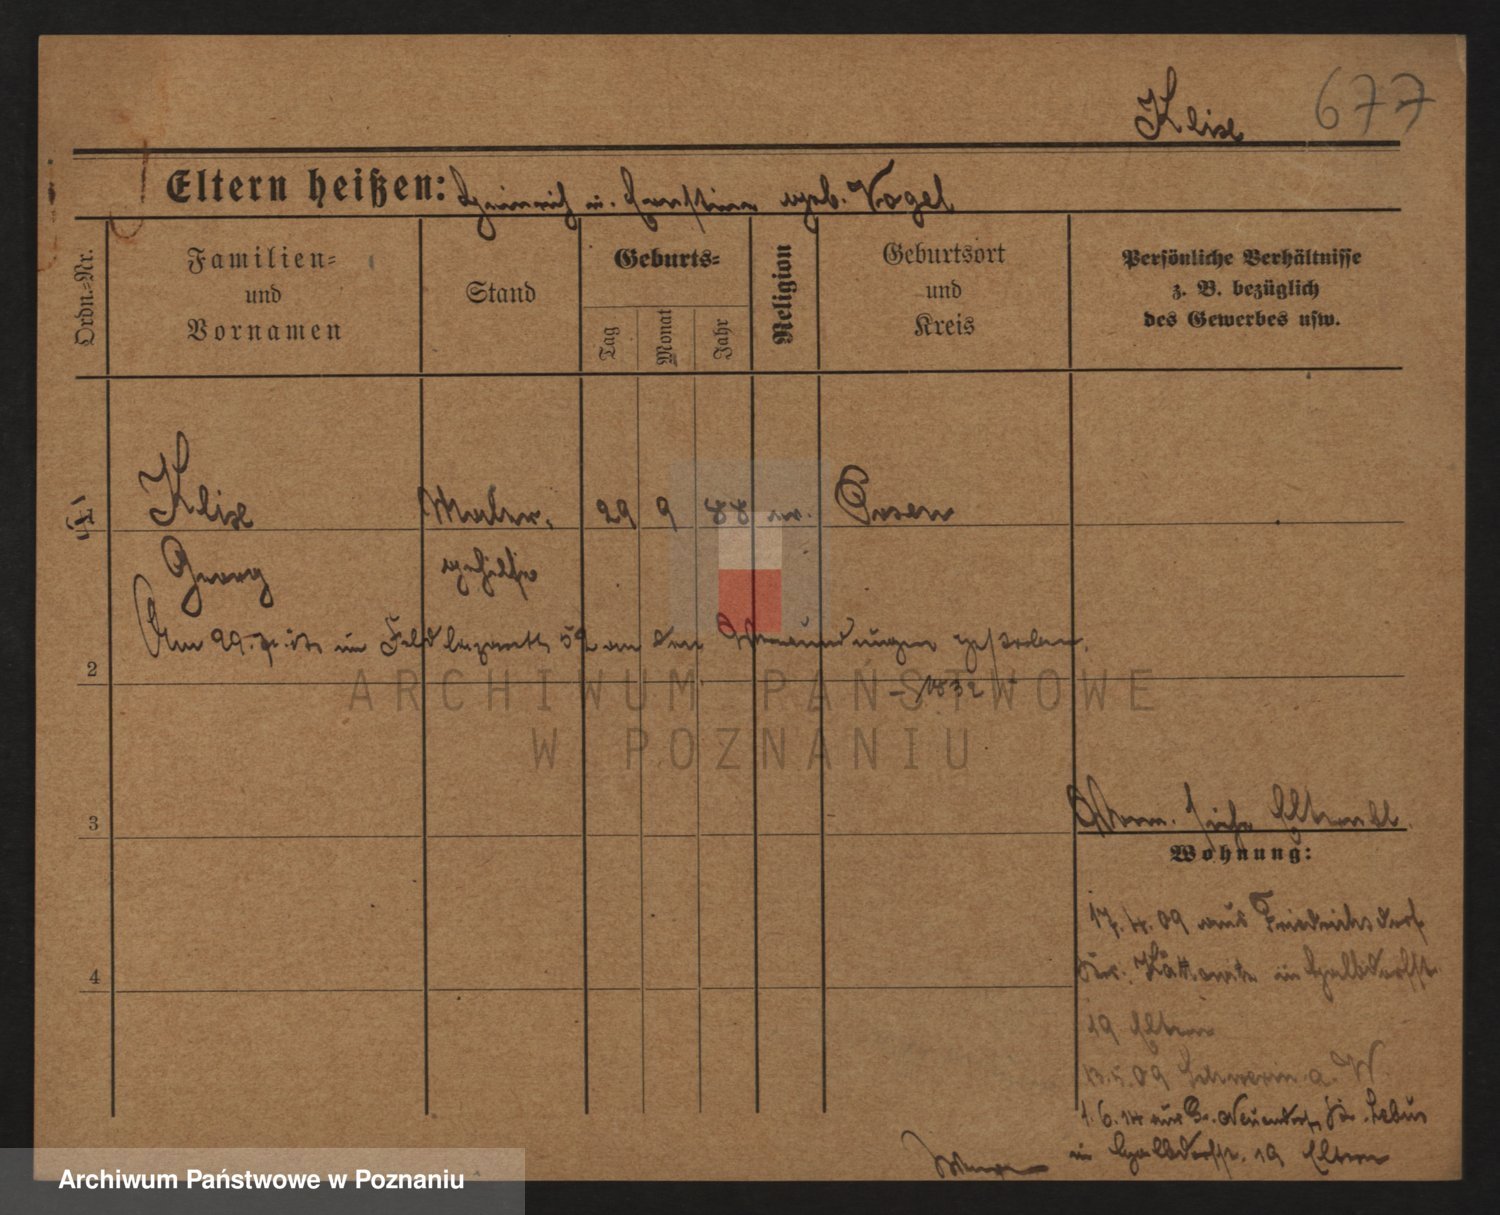 Klise 677
Eltern heißen: Heinrich u. Ernstine geb. Vogel
Ordn.-Nr.
Familien- und Vornamen
Stand
Geburts-
Tag
Monat
Jahr
Religion
Geburtsort und Kreis
Persönliche Verhältnisse z. B. bezüglich des Gewerbes usw.
1 Klise Maler- 29 9 88 ev. Posen
Georg gehilfe
Am 29. im Feldlazarett 52 an den gestorben.
2
1832
ARCHIWUM PAŃSTWOWE
W POZNANIU
3
siehe Elternbl.
Wohnung:
17.4.09 aus Friedrichsdorf
4
Kr. Kattowitz in
19 Eltern
13.5.09 Schwerin a. W.
1.6.14 aus Gr. Neuendorf Kr. Lebus
in 19 Eltern
Archiwum Państwowe w Poznaniu